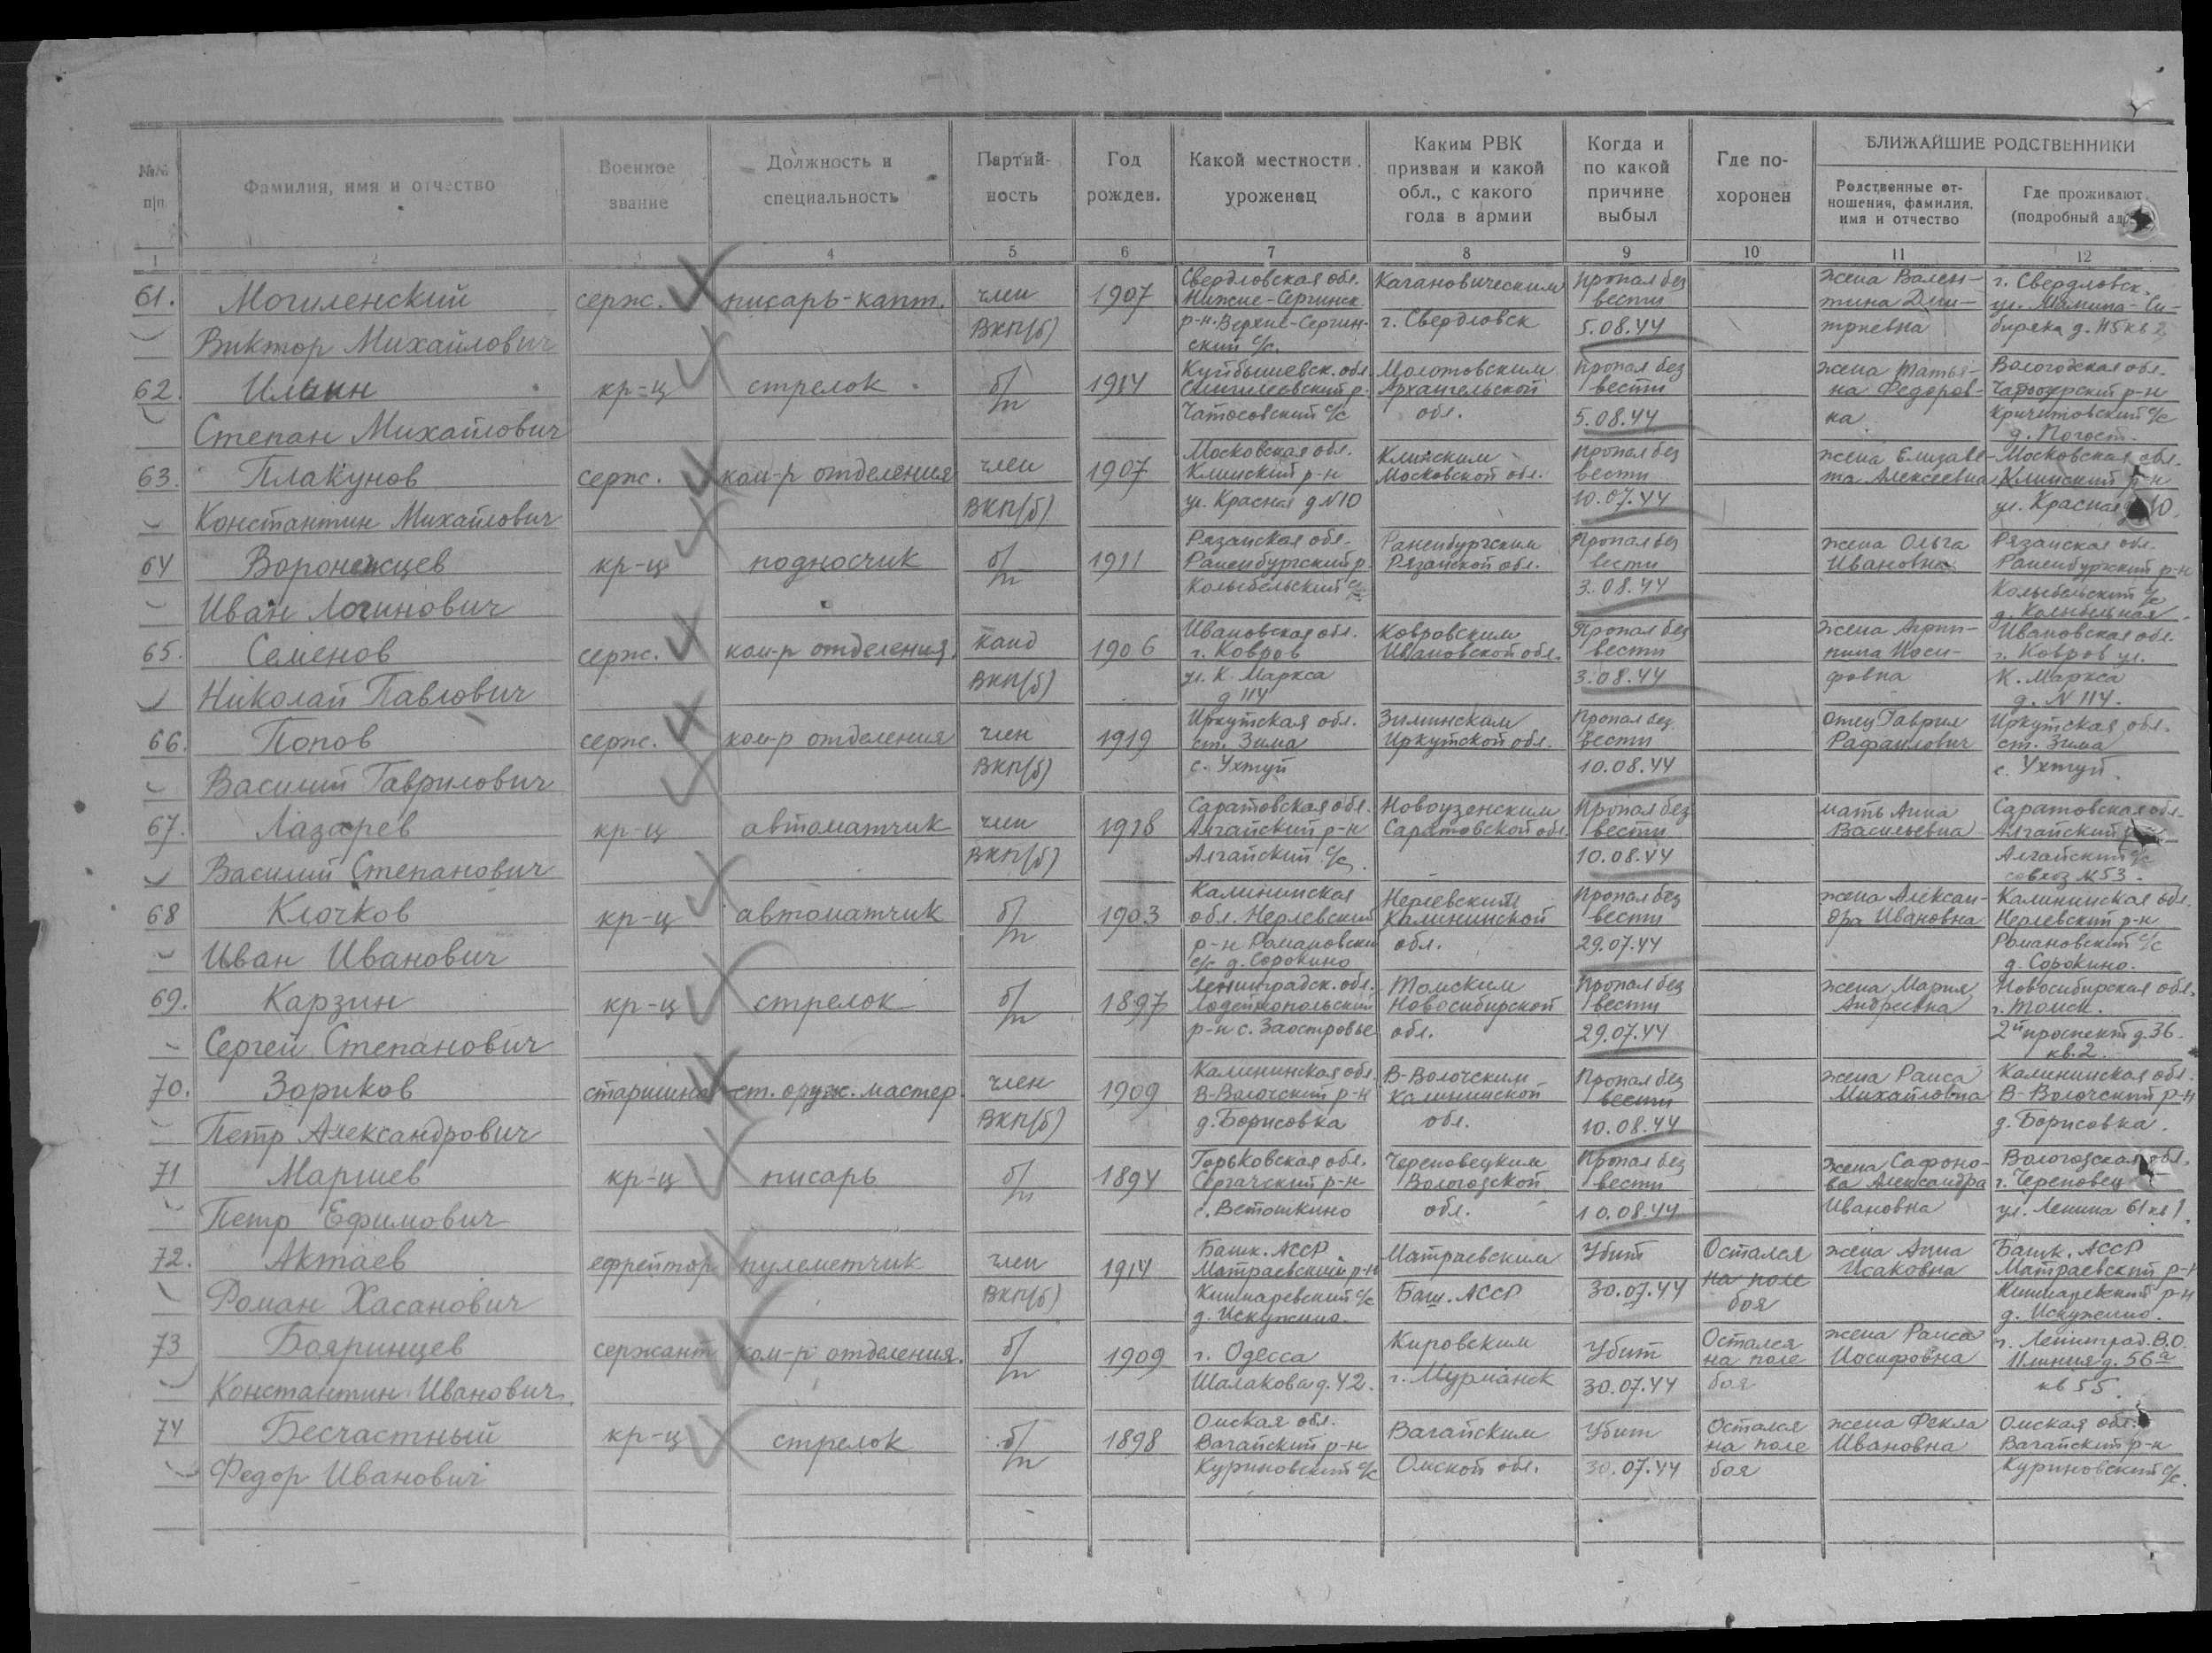 №№ п|п
Фамилия, имя и отчество
Военное звание
Должность и специальность
Партий- ность
Год рожден.
Какой местности уроженец
Каким РВК призван и какой обл., с какого года в армии
Когда и по какой причине выбыл
Где по- хоронен
БЛИЖАЙШИЕ РОДСТВЕННИКИ
Родственные от- ношения, фамилия, имя и отчество
Где проживают (подробный
1 2 3 4 5 6 7 8 9 10 11 12
61. Могиленский Виктор Михайлович
серж.
писарь-капт.
член ВКП(б)
1907
Свердловская обл. Нижне-Сергинск р-н. Верхне-Сергин- ский с/с.
Кагановическим г. Свердловск
Пропал без вести 5.08.44
жена Вален- тина Дми- триевна
г. Свердловск. ул. Мамина-Си- биряка д.
62. Ильин Степан Михайлович
кр-ц
стрелок.
б/п
1914
Куйбышевск. обл. р. с/с
Молотовским Архангельской обл.
Пропал без вести 5.08.44
жена Татья- на Федоров- на.
Вологодская обл. р-н с/с д. Погост.
63. Плакунов Константин Михайлович
серж.
ком-р отделения
член ВКП(б)
1907
Московская обл. Клинский р-н ул. Красная д N10
Клинским Московской обл.
Пропал без вести 10.07.44
жена Елизаве- та Алексеевна
Московская обл. Клинский р-н ул. Красная 10.
64 Воронежцев Иван Логинович
кр-ц
подносчик
б/п
1911
Рязанская обл. Раненбургский р. Колыбельский с/с
Раненбургским Рязанской обл.
Пропал без вести 3.08.44
жена Ольга Ивановна
Рязанская обл. Раненбургский р-н Колыбельский с/с д. Колыбельная.
65. Семенов Николай Павлович
серж.
ком-р отделения.
канд ВКП(б)
1906
Ивановская обл. г. Ковров ул. К. Маркса д 114
Ковровским Ивановской обл.
Пропал без вести 3.08.44
жена Агрип- пина Иоси- фовна
Ивановская обл. г. Ковров ул. К. Маркса д. N 114.
66. Попов Василий Гаврилович
серж.
ком-р отделения
член ВКП(б)
1919
Иркутская обл. ст. Зима с. Ухтуй
Зиминским Иркутской обл.
Пропал без вести 10.08.44
отец Гаврил Рафаилович
Иркутская обл. ст. Зима с. Ухтуй.
67. Лазарев Василий Степанович
кр-ц
автоматчик
член ВКП(б)
1918
Саратовская обл. Алгайский р-н Алгайский с/с.
Новоузенским Саратовской обл
Пропал без вести 10.08.44
мать Анна Васильевна
Саратовская обл. Алгайский Алгайский с/с совхоз N53.
68 Клочков Иван Иванович
кр-ц
автоматчик
б/п
1903
Калининская обл. Нерлевский р-н Романовски с/с д. Сорокино
Нерлевским Калининской обл.
Пропал без вести 29.07.44
жена Алексан- дра Ивановна
Калининская обл. Нерлевский р-н Романовский с/с д. Сорокино.
69. Карзин Сергей Степанович
кр-ц
стрелок
б/п
1897
Ленинградск. обл. Лодейнопольский р-н с. Заостровье
Томским Новосибирской обл.
Пропал без вести 29.07.44
жена Мария Андреевна
Новосибирская обл. г. Томск. 2й проспект д. 36. кв. 2.
70. Зориков Петр Александрович
старшина
ст. оруж. мастер
член ВКП(б)
1909
Калининская обл. В-Волочский р-н д. Борисовка
В-Волочским Калининской обл.
Пропал без вести 10.08.44
жена Раиса Михайловна
Калининская обл. В-Волочский р-н д. Борисовка.
71 Маршев Петр Ефимович
кр-ц
писарь
б/п
1894
Горьковская обл. Сергачский р-н с. Ветошкино
Череповецким Вологодской обл.
Пропал без вести 10.08.44
жена Сафоно- ва Александра Ивановна
Вологодская обл. г. Череповец ул. Ленина 61 кв 1.
72. Актаев Роман Хасанович
ефрейтор
пулеметчик
член ВКП(б)
1914
Башк. АССР. Матраевский р-н с/с д. Искужино.
Матраевским Баш. АССР
Убит 30.07.44
Остался на поле боя
жена Анна Исаковна
Башк. АССР Матраевский р-н р-н д. Искужино.
73 Бояринцев Константин Иванович.
сержант
ком-р отделения.
б/п
1909
г. Одесса Шалакова д. 42.
Кировским г. Мурманск
Убит 30.07.44
Остался на поле боя
жена Раиса Иосифовна
г. Ленинград. В.О. 11 линия д. 56а кв 55.
74 Бесчастный Федор Иванович
кр-ц
стрелок
б/п
1898
Омская обл. Вагайский р-н Куриновский с/с
Вагайским Омской обл.
Убит 30.07.44
Остался на поле боя
жена Фекла Ивановна
Омская обл. Вагайский р-н Куриновский с/с.